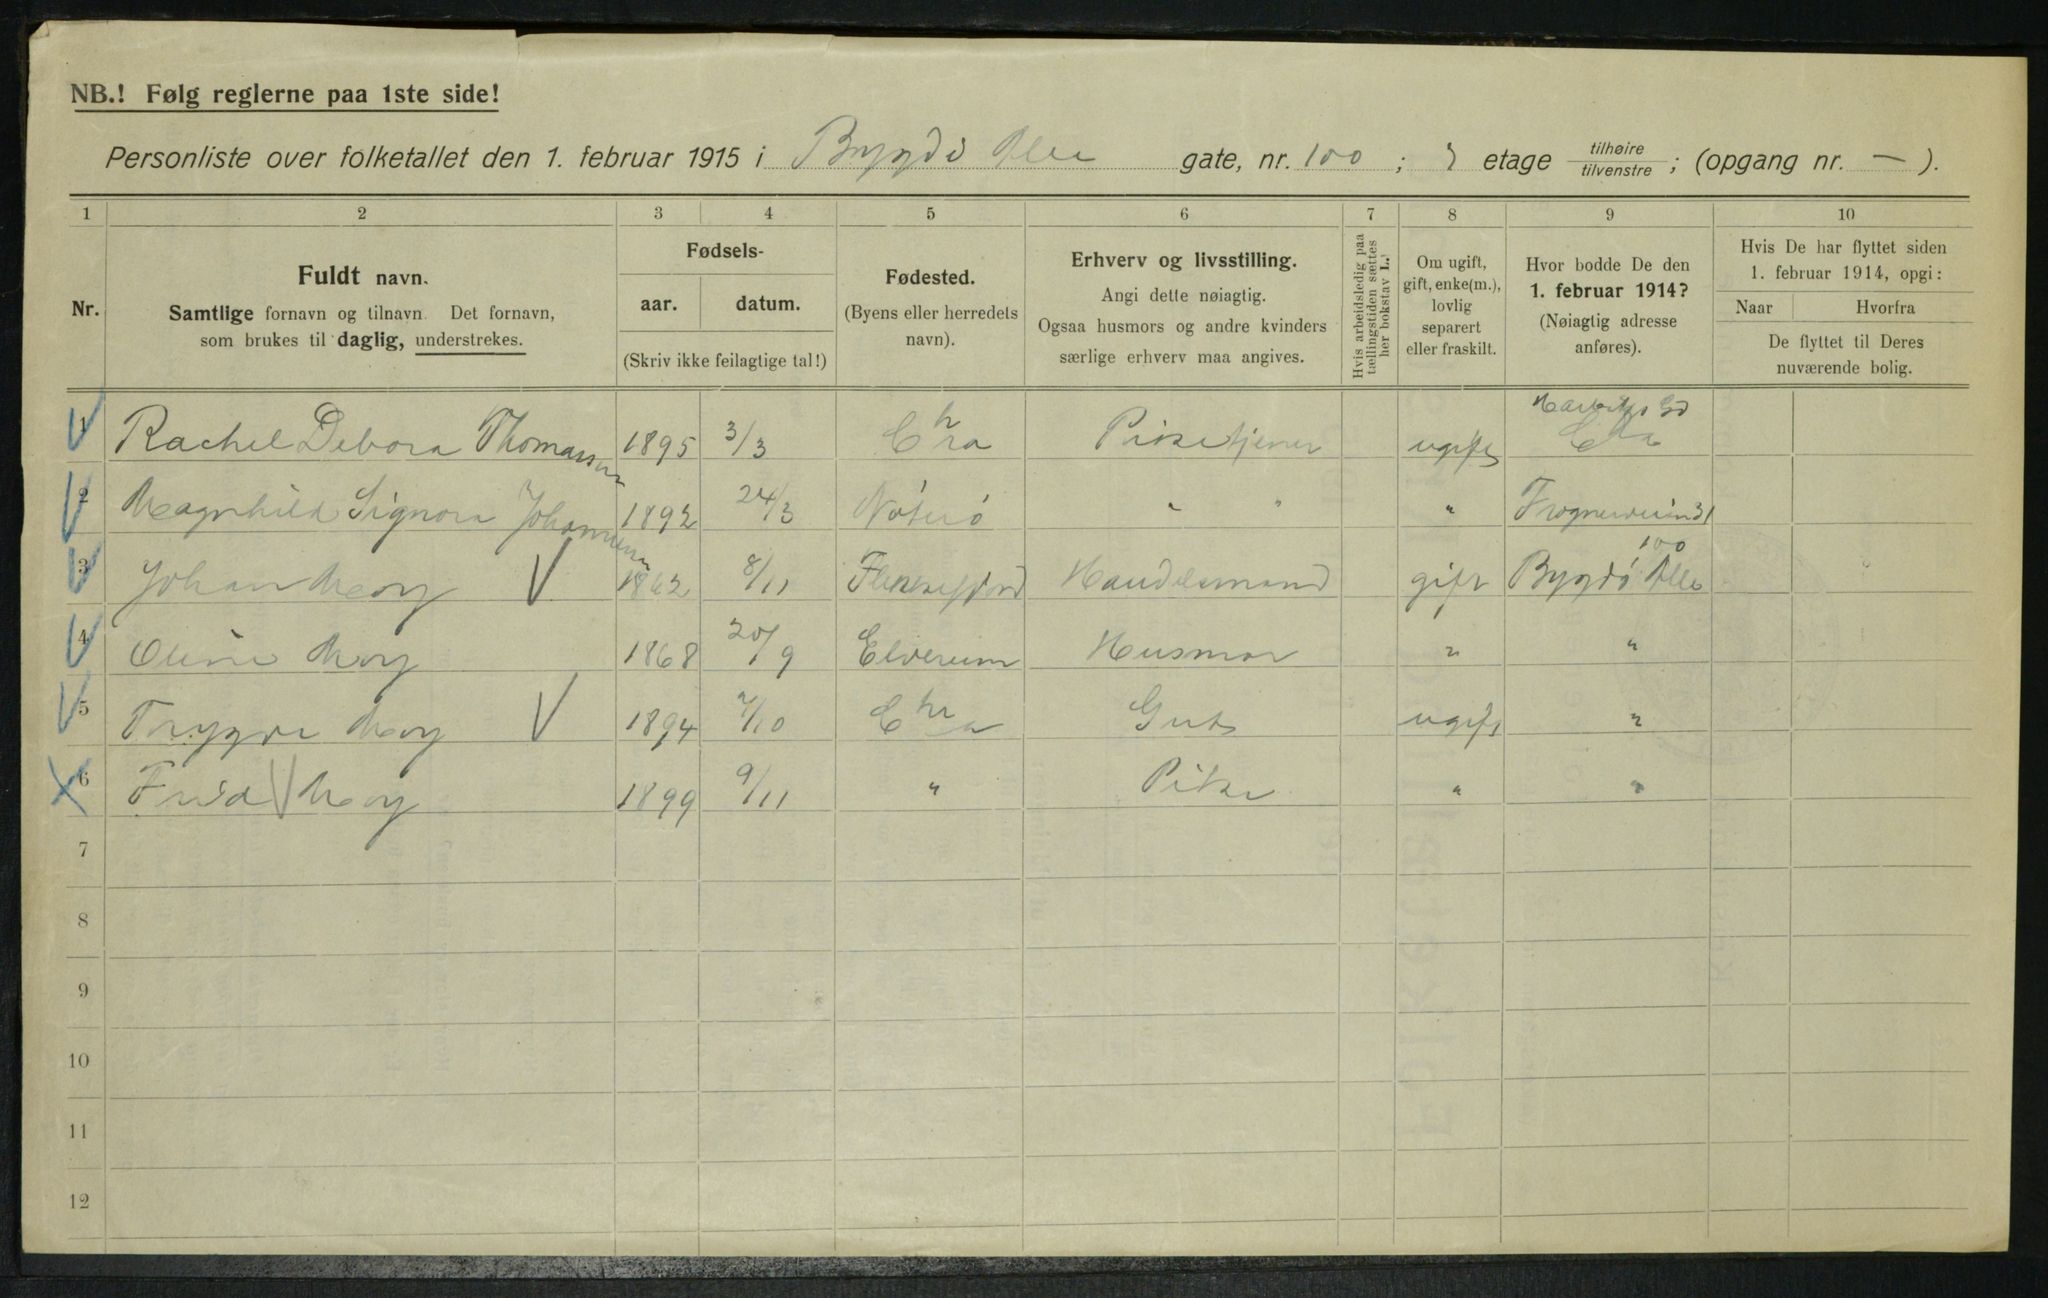 NB.! Følg reglerne paa 1ste side!
Personliste over folketallet den 1. februar 1915 i Bygdö Alle gate, nr. 100 ; etage tilhøire tilvenstre ; (opgang nr. — ).
1 2 3 4 5 6 7 8 9 10
Nr.
Fuldt navn.
Samtlige fornavn og tilnavn. Det fornavn,
som brukes til daglig, understrekes.
Fødsels-
aar. datum.
(Skriv ikke feilagtige tal!)
Fødested.
(Byens eller herredets
navn).
Erhverv og livsstilling.
Angi dette nøiagtig.
Ogsaa husmors og andre kvinders
særlige erhverv maa angives.
Hvis arbeidsledig paa
tællingstiden sættes
her bokstav L.
Om ugift,
gift, enke(m.),
lovlig
separert
eller fraskilt.
Hvor bodde De den
1. februar 1914?
(Nøiagtig adresse
anføres).
Hvis De har flyttet siden
1. februar 1914, opgi:
Naar Hvorfra
De flyttet til Deres
nuværende bolig.
1 Rachel Debora Thomassen 1895 3/3 Chra Piketjener ugift Chra
2 Magnhild Signora Johannesen 1892 24/3 Nöterö " " " Frognerveien 31
3 Johan Moy 1862 8/11 Flekkefjord Handelsmand gift Bygdö Alle 100
4 Oline Moy 1868 20/9 Elverum Husmor " "
5 Trygve Moy 1894 7/10 Chra Gut ugift "
6 Moy 1899 9/11 " Pike " "
7
8
9
10
11
12